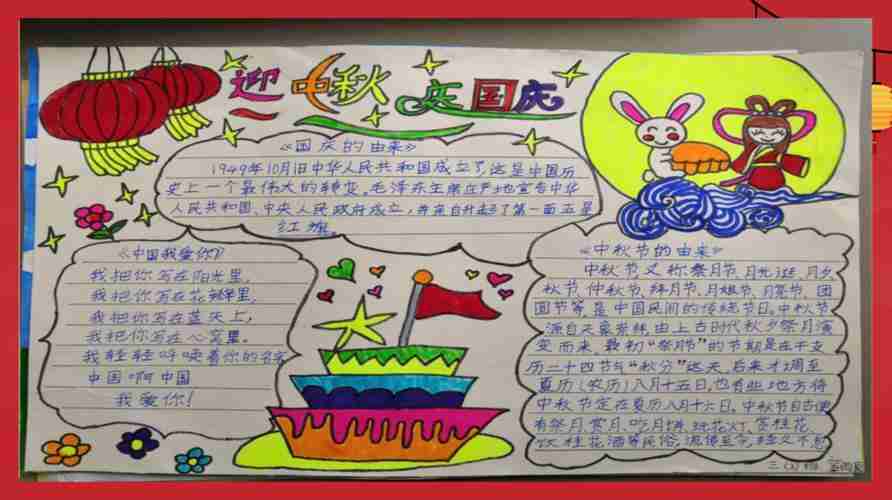 迎中秋 庆国庆
《国庆的由来》
1949年10月1日中华人民共和国成立了,这是中国历
史上一个最伟大的转变,毛泽东主席在产地宣告中华
人民共和国、中央人民政府成立,并亲自升起了第一面五星
红旗。
《中国我爱你》
我把你写在阳光里,
我把你写在花瓣里,
我把你写在蓝天上,
我把你写在心窝里。
我轻轻呼唤着你的名字
中国啊中国
我爱你!
《中秋节的由来》
中秋节又称祭月节、月光诞、月夕、
秋节、仲秋节、拜月节、月娘节、月亮节、团
圆节等,是中国民间的传统节日。中秋节
源自天象崇拜,由上古时代秋夕祭月演
变而来。最初“祭月节”的节期是在干支
历二十四节气“秋分”这天,后来才调至
夏历(农历)八月十五日,也有些地方将
中秋节定在夏历八月十六日。中秋节自古便
有祭月、赏月、吃月饼、玩花灯、赏桂花、
饮桂花酒等民俗,流传至今,经久不息
三(1)班